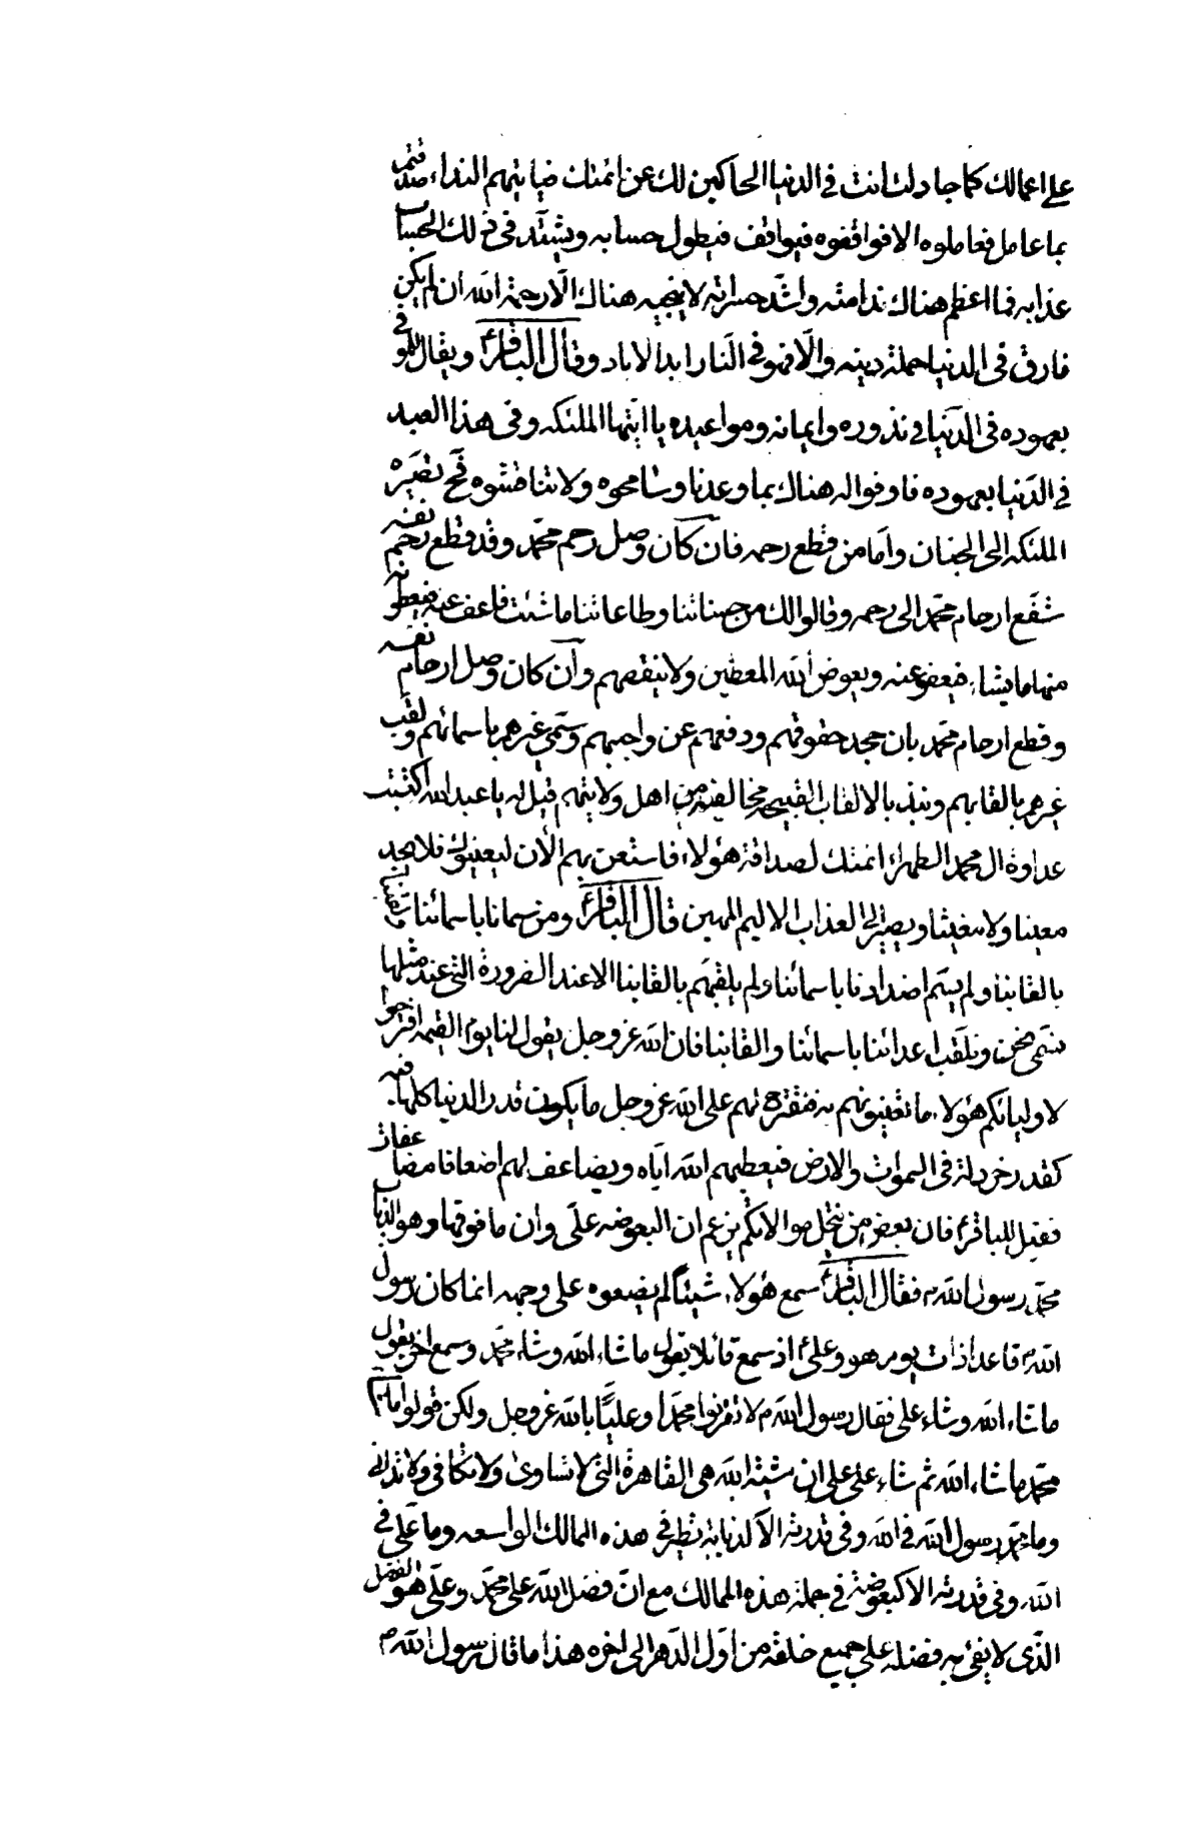 على اعمالك كما جادلت انت في الدنيا الحاكين لك عن ائمتك فياتيهم النداء صدقتم
بما عامل فعاملوه الا فواقفوه فيواقف فيطول حسابه ويشتد في ذلك الحساب
عذابه فما اعظم هناك ندامته واشد حسراته لا ينجيه هناك الا رحمة الله ان لم يكن
فارق في الدنيا جملة دينه والا فهو في النار ابد الاباد وقال الباقر ع ويقال للموفي
بعهوده في الدنيا في نذوره وايمانه ومواعيده يا ايتها الملئكه وفى هذا العبد
في الدنيا بعهوده فاوفوا له هناك بما وعدنا وسامحوه ولا تناقشوه فح تصيره
الملئكه الى الجنان واما من قطع رحمه فان كان وصل رحم محمد وقد قطع رحم نفسه
شفع ارحام محمد الى رحمه وقالوا لك من حسناتنا وطاعاتنا ما شئت فاعف عنه فيعطونه
منها ما يشاء فيعفو عنه ويعوض الله المعطين ولا ينقصهم وان كان وصل ارحام نفسه
وقطع ارحام محمد بان جحد حقوقهم ودفعهم عن واجبهم وسمى غيرهم باسمائهم ولقب
غيرهم بالقابهم ونبذ بالالقاب القبيحه مخالفيه من اهل ولايتهم قيل له يا عبد الله اكتسبت
عداوة ال محمد الطهر ائمتك لصداقة هؤلاء فاستعن بهم الان ليعينوك فلا يجد
معينا ولا مغيثا ويصير الى العذاب الاليم المهين قال الباقر ع ومن سمانا باسمائنا ولقبنا
بالقابنا ولم يسم اضدادنا باسمائنا ولم يلقبهم بالقابنا الا عند الضرورة التي عند مثلها
نسمى نحن ونلقب اعدائنا باسمائنا والقابنا فان الله عز وجل يقول لنا يوم القيمه اقترحوا
لاوليائكم هؤلاء ما تعينونهم به فنقترح لهم على الله عز وجل ما يكون قدر الدنيا كلها فيه
كقدر خردلة في السموات والارض فيعطيهم الله اياه ويضاعف لهم اضعافا مضاعفات
فقيل للباقر ع فان بعض من ينتحل موالاتكم يزعم ان البعوضه علي وان ما فوقها وهو الذباب
محمد رسول الله ص فقال الباقر ع سمع هؤلاء شيئا لم يضعوه على وجهه انما كان رسول
الله ص قاعدا ذات يوم هو وعلي ع اذ سمع قائلا يقول ما شاء الله وشاء محمد وسمع اخر يقول
ما شاء الله وشاء علي فقال رسول الله ص لا تقرنوا محمدا وعليا بالله عز وجل ولكن قولوا ما شاء الله ثم شاء
محمد ما شاء الله ثم شاء علي على ان مشية الله هي القاهرة التي لا تساوى ولا تكافى ولا تدانى
وما محمد رسول الله في الله وفي قدرته الا كذبابة تطير في هذه الممالك الواسعه وما علي في
الله وفي قدرته الا كبعوضة في جملة هذه الممالك مع ان فضل الله على محمد وعلي هو الفضل
الذي لا يفي به فضله على جميع خلقه من اول الدهر الى اخره هذا ما قال رسول الله ص